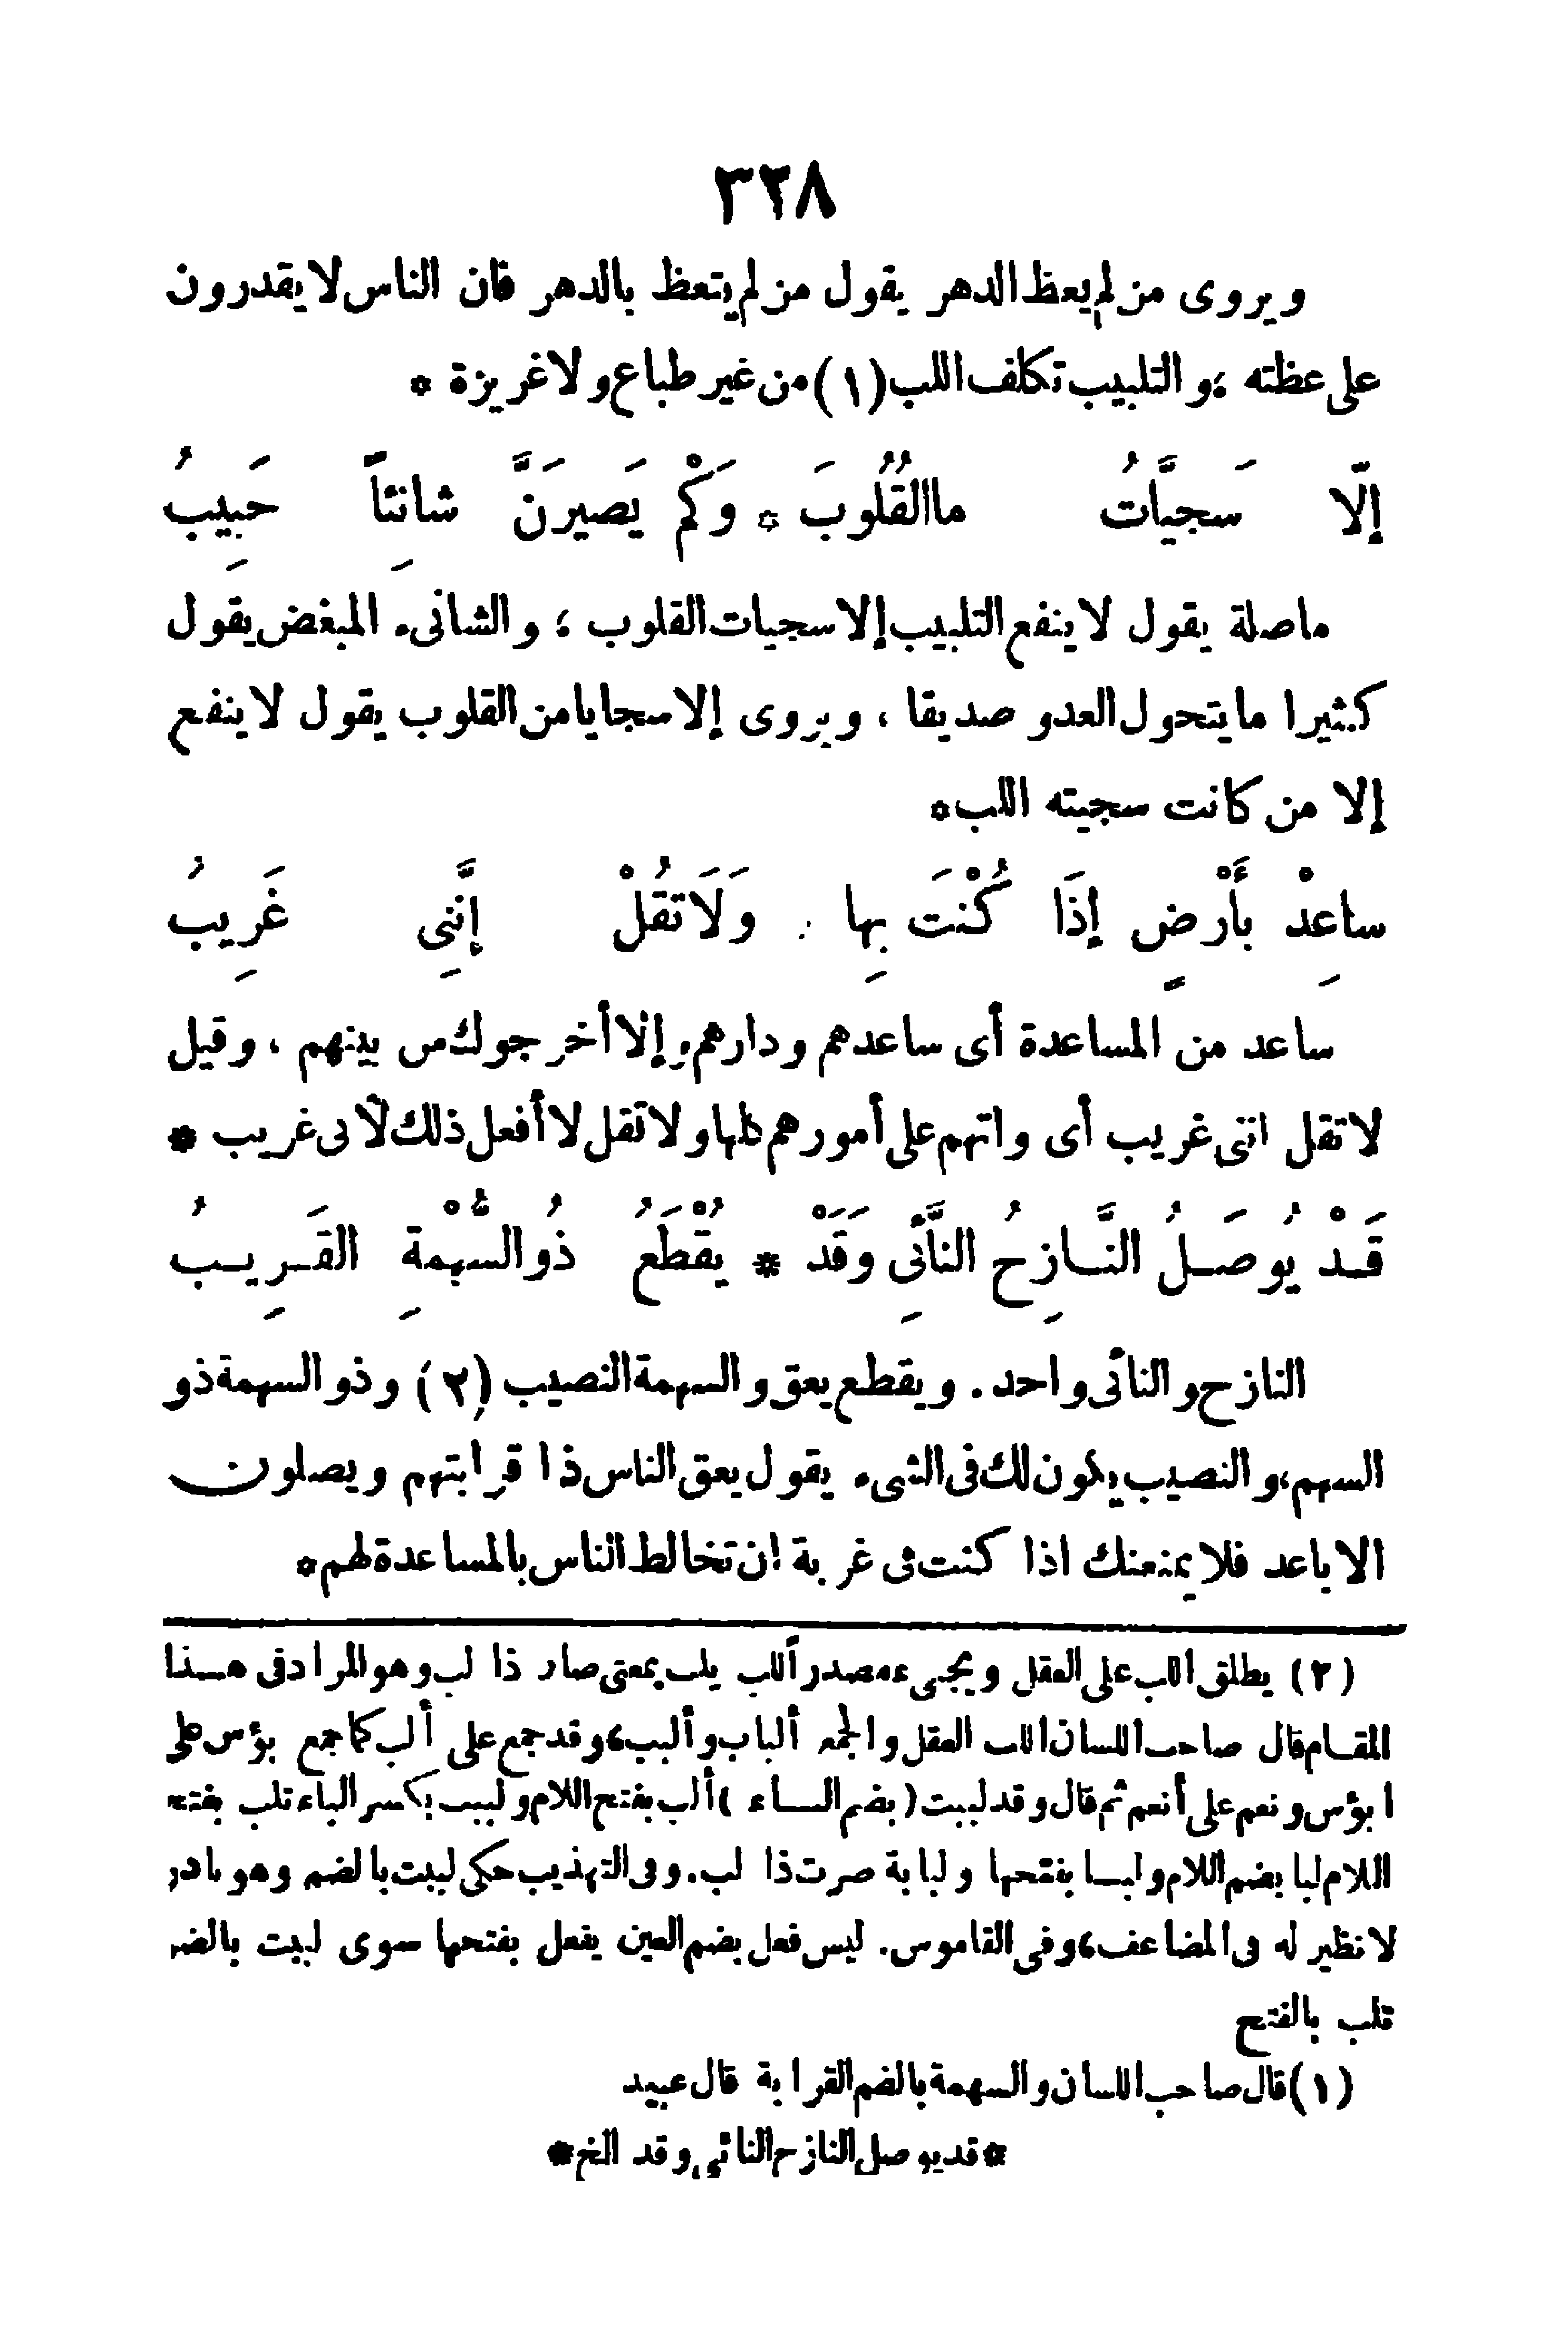 ٣٢٨
ويروى من لم يعظ الدهر يقول من لم يتعظ بالدهر فان الناس لا يقدرون
على عظته ؛ والتلبيب تكلف اللب (١) من غير طباع ولا غريزة *
إلّا سَجيَّاتُ ما القُلُوبَ * وَكَمْ يَصيرَنَّ شانِئاً حَبِيبُ
ما صلة يقول لا ينفع التلبيب إلا سجيات القلوب ؛ والشانىء المبغض يقول
كثيرا ما يتحول العدو صديقا ، ويروى إلا سجايا من القلوب يقول لا ينفع
إلا من كانت سجيته اللب *
ساعِدْ بأَرْضٍ إذَا كُنْتَ بِها . وَلَا تَقُلْ إنَّنِى غَرِيبُ
ساعد من المساعدة أى ساعدهم ودارهم وإلا أخرجوك من بينهم ، وقيل
لا تقل اننى غريب أى واتهم على أمورهم كلها ولا تقل لا أفعل ذلك لأنى غريب *
قَـدْ يُوصَـلُ النَّـازِحُ النَّأئِى وَقَدْ * يُقْطَعُ ذُو السُّهْمةِ القَـرِيـبُ
النازح والنائى واحد . ويقطع يعق والسهمة النصيب (٢) وذو السهمة ذو
السهم ، والنصيب يكون لك فى الشىء يقول يعق الناس ذا قرابتهم ويصلون
الاباعد فلا يمنعنك اذا كنت فى غربة ان تخالط الناس بالمساعدة لهم *
(٢) يطلق اللب على العقل ويجىء مصدر ألب يلب بمعنى صار ذا لب وهو المراد فى هـذا
المقـام قال صاحب اللسان اللب العقل والجمع ألباب وألبب ، وقد جمع على ألب كما جمع بؤس على
ابؤس ونعم على أنعم ثم قال وقد لببت (بضم البـاء) ألب بفتح اللام ولبيب بكسر الباء تلب بفتح
اللام لبا بضم اللام ولبـا بفتحها ولبابة صرت ذا لب . وفى التهذيب حكى لببت بالضم وهو نادر
لا نظير له فى المضاعف ، وفى القاموس . ليس فعل بضم العين يفعل بفتحها سوى لببت بالضم
تلب بالفتح
(١) قال صاحب اللسان والسهمة بالضم القرابة قال عبيد
* قد يوصل النازح النائى وقد الخ *